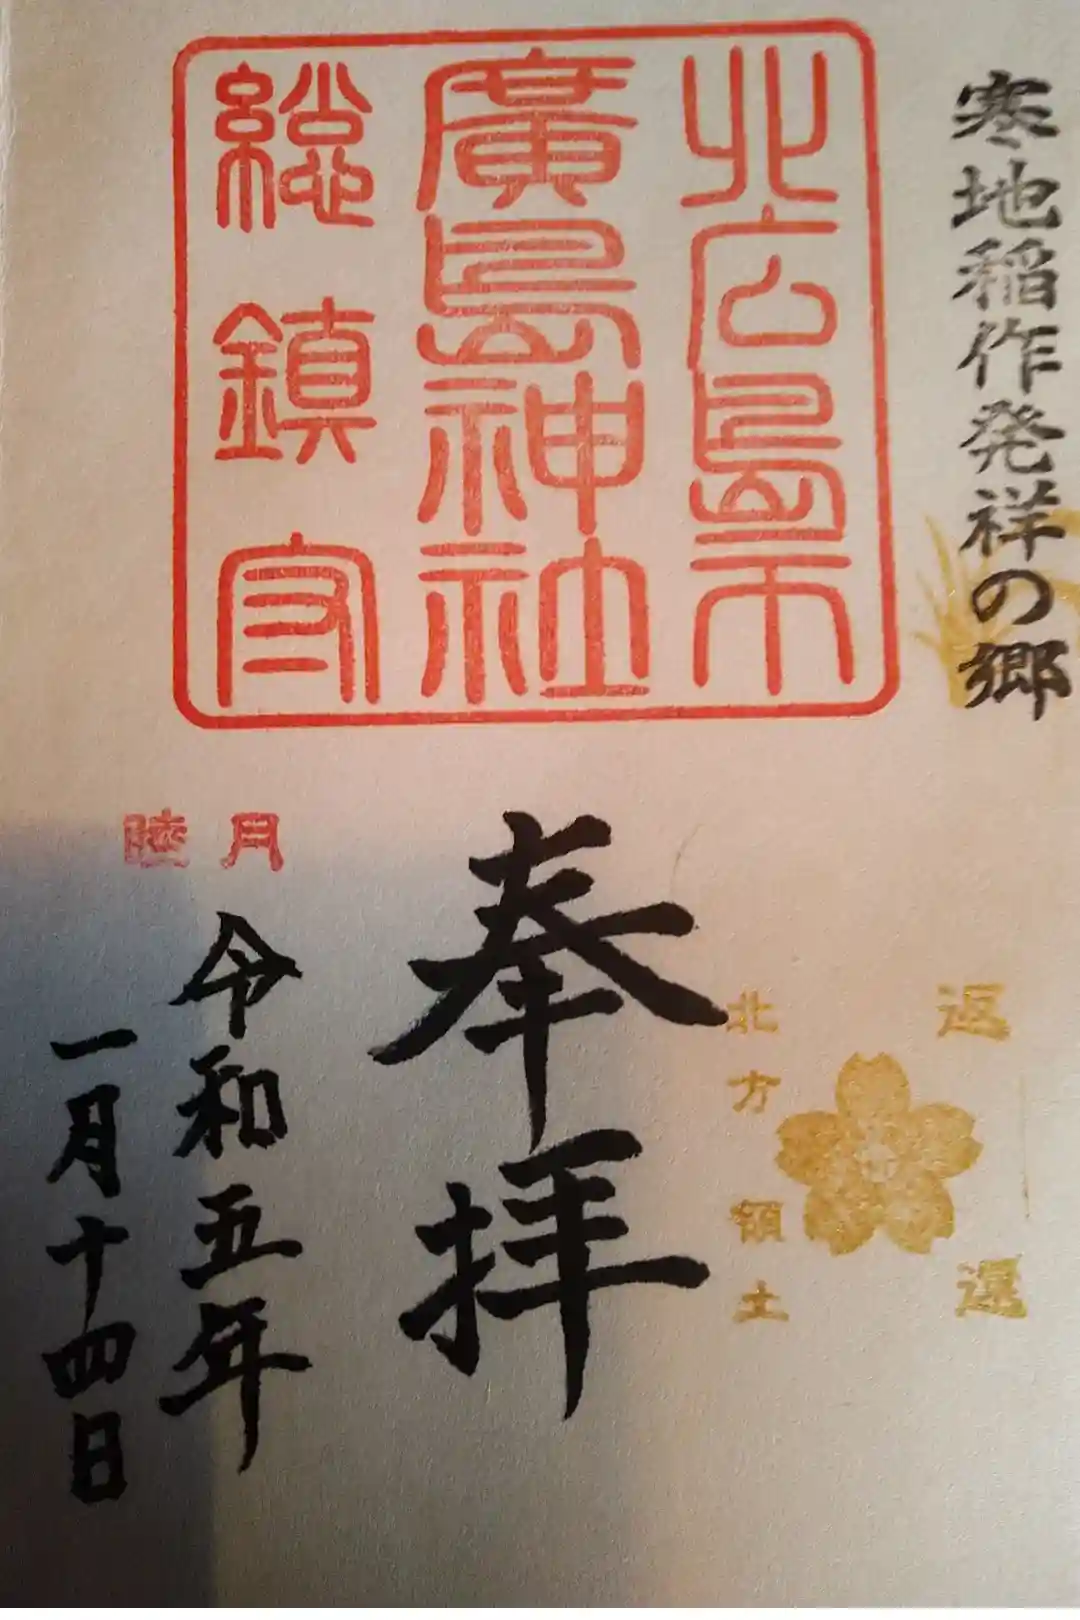 寒地稲作発祥の郷
北広島市
廣島神社
総鎮守
返還
北方領土
奉拝
睦月
令和五年
一月十四日